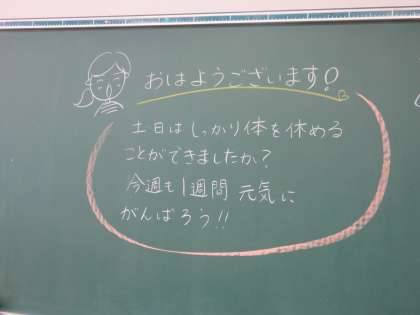 おはようございます!
土日はしっかり体を休める
ことができましたか?
今週も1週間 元気に
がんばろう!!